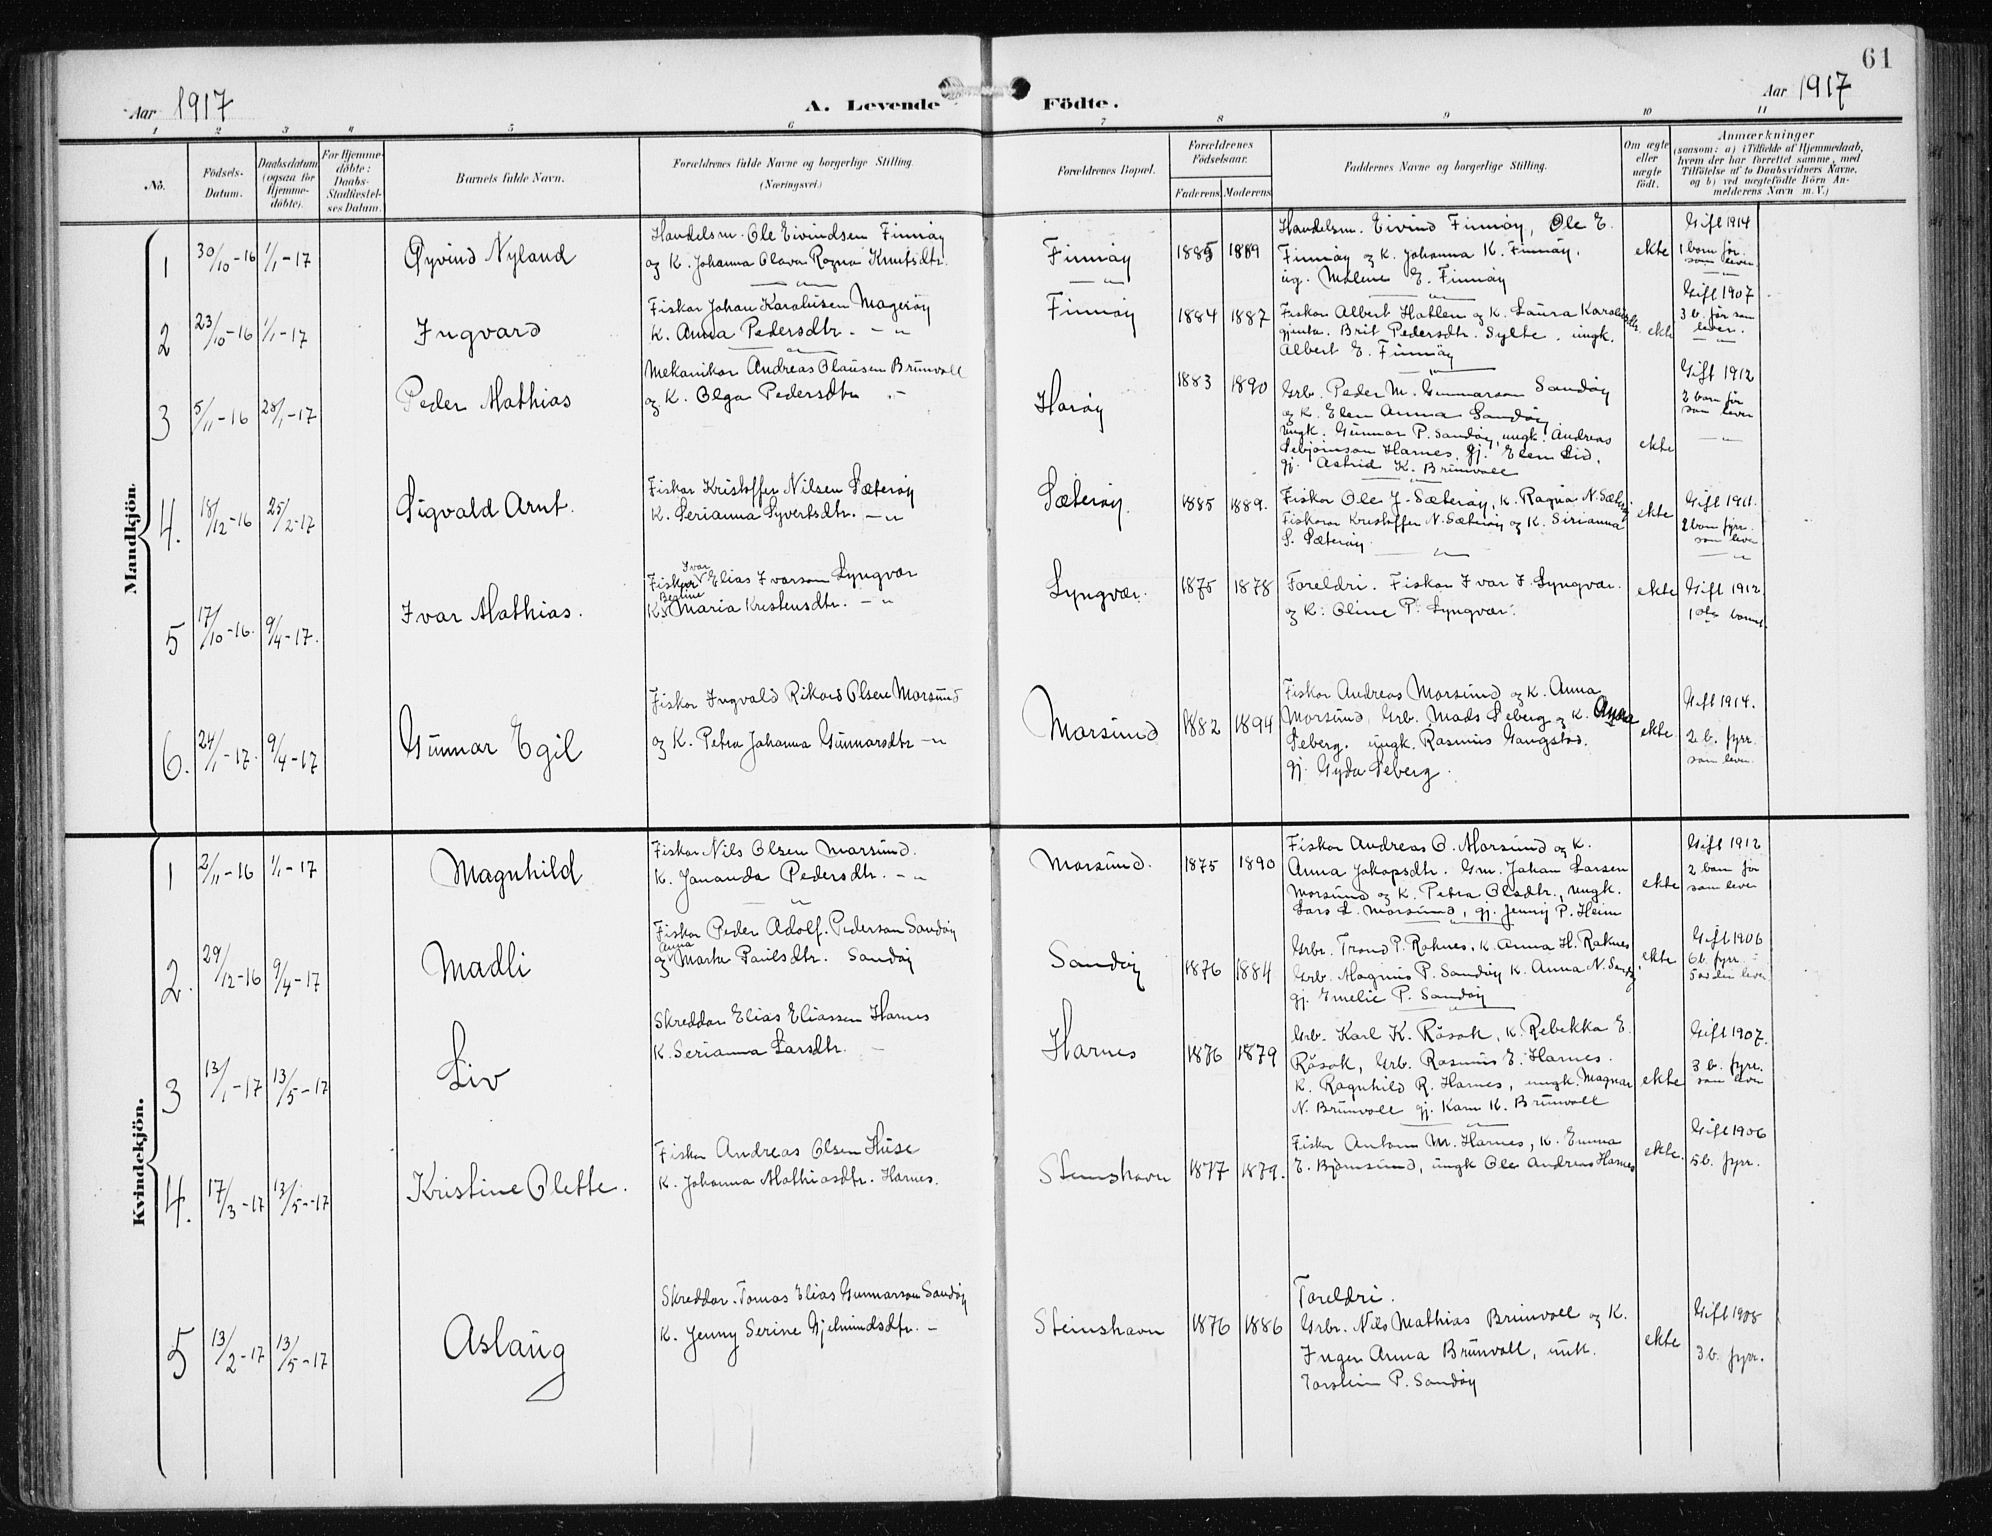 61
Aar 1917
A. Levende Födte.
Aar 1917
1 2 3 4 5 6 7 8 9 10 11
No.
Födsels-Datum.
Daabsdatum (ogsaa for Hjemmedöbte).
For Hjemmedöbte: Daabs-Stadfæstelses Datum.
Barnets fulde Navn.
Forældrenes fulde Navne og borgerlige Stilling. (Næringsvei.)
Forældrenes Bopæl.
Forældrenes Födselsaar.
Faderens
Moderens
Faddernes Navne og borgerlige Stilling.
Om ægte eller uægte födt.
Anmærkninger
(saasom: a) i Tilfælde af Hjemmedaab, hvem der har forrettet samme, med Tilföielse af to Daabsvidners Navne, og b) ved uægtefödte Börn Anmelderens Navn m. V.)
Mandkjön.
1 30/10-16 1/1-17 Øyvind Nyland
Handelsm. Ole Eivindsen Finnøy
og K. Johanna Olava Ragna Knutsdtr.
Finnøy 1885 1889
Handelsm. Eivind Finnøy, Ole E.
Finnøy og K. Johanna K. Finnøy.
ug. Malene E. Finnøy
ekte
Gift 1914
1 barn før
som lever
2 23/10-16 1/1-17 Ingvard
Fisker Johan Karolusen Magerøy
K. Anna Pedersdtr. - " -
Finnøy 1884 1887
Fisker Albert Hatlen og K. Laura
gjenta. Brit Pedersdtr. Sylte. ungk.
Albert E. Finnøy
ekte
Gift 1907
3 b. før som
lever.
3 5/11-16 28/1-17 Peder Mathias
Mekaniker Andreas Olausen Brunvoll
og K. Olga Pedersdtr. -
Harøy 1883 1890
Grb. Peder M. Gunnarson Sandøy
og K. Elen Anna Sandøy
ungk. Gunnar P. Sandøy, ungk. Andreas
Harnes, gj. Elen Lid.
gj. Astrid K. Brunvoll
ekte
Gift 1912
2 barn før
som lever
4. 18/12-16 25/2-17 Sigvald Arnt.
Fiskar Kristoffer Nilsen Sæterøy
K. Serianna Syvertsdtr. - " -
Sæterøy. 1885 1889.
Fiskar Ole J. Sæterøy, K. Ragna N. Sæterøy
Fiskarar Kristoffer N. Sæterøy og K. Sirianna
S. Sæterøy
ekte
Gift 1911.
2 barn fyrr.
som lever
5 17/10-16. 9/4-17. Ivar Mathias.
Ivar
Fiskar Elias Ivarson Lyngvær
Bertine
K. Maria Kristensdtr. - " -
Lyngvær. 1875 1878
Foreldri. Fiskar Ivar I. Lyngvær.
og K. Oline P. Lyngvær.
ekte
Gift 1912.
1ste barnet.
6. 24/1-17. 9/4-17 Gunnar Egil
Fiskar Ingvald Rikard Olsen Morsund
og K. Petra Johanna Gunnarsdtr - " -
Morsund 1882 1894
Fiskar Andreas Morsund og K. Anna
Morsund, Grb. Mads Seberg og K.
Seberg. ungk. Rasmus Gangstad.
gj. Gyda Seberg.
ekte
Gift 1914.
2 b. fyrr.
som lever.
Kvindekjön.
1 2/11-16 1/1-17 Magnhild
Fiskar Nils Olsen Morsund.
K. Jananda Pedersdtr. - " -
Morsund. 1875 1890
Fiskar Andreas O. Morsund og K.
Anna Jakopsdtr. Gm. Johan Larsen
Morsund og K. Petra Olsdtr., ungk.
Lars L. Morsund, gj. Jenny P. Heim
ekte
Gift 1912
2 barn før
som lever
2. 29/12-16 9/4-17 Madli
Fiskar Peder Adolf. Pederson Sandøy
Anna
og Marta Paulsdtr. Sandøy
Sandøy 1876 1884
Grbr. Trond P. Raknes, K. Anna H. Raknes
Grb. Magnus P. Sandøy K. Anna N. Sandøy
gj. Emelie P. Sandøy
ekte
Gift 1906
6 b. fyrr.
5 av dei lever
3 13/1-17 13/5-17 Liv
Skreddar Elias Eliassen Harnes
K. Serianna Larsdtr. -
Harnes 1876 1879
Grb. Karl K. Røsok, K. Rebekka E.
Røsok, Grb. Rasmus E. Harnes.
K. Ragnhild R. Harnes, ungk. Magnar
N. Brunvoll gj. Karn K. Brunvoll
ekte
Gift 1907.
3 b. fyrr.
som lever
4. 17/3-17 13/5-17 Kristine Olette.
Fiskar Andreas Olsen Huse
K. Johanna Mathiasdtr. Harnes.
Steinshavn 1877 1879.
Fiskar Anton M. Harnes, K. Emma
E. Bjørnsund, ungk Ole Andreas Harnes
ekte.
Gift 1906
5 b. fyrr.
5 13/2-17 13/5-17 Aslaug
Skreddar. Tomas Elias Gunnarson Sandøy
K. Jenny Serine Gjelmundsdtr. -
Steinshavn 1876 1886
Foreldri.
Grbr. Nils Mathias Brunvoll og K.
Inger Anna Brunvoll, unk.
Torstein P. Sandøy
ekte
Gift 1908
3 b. fyrr.